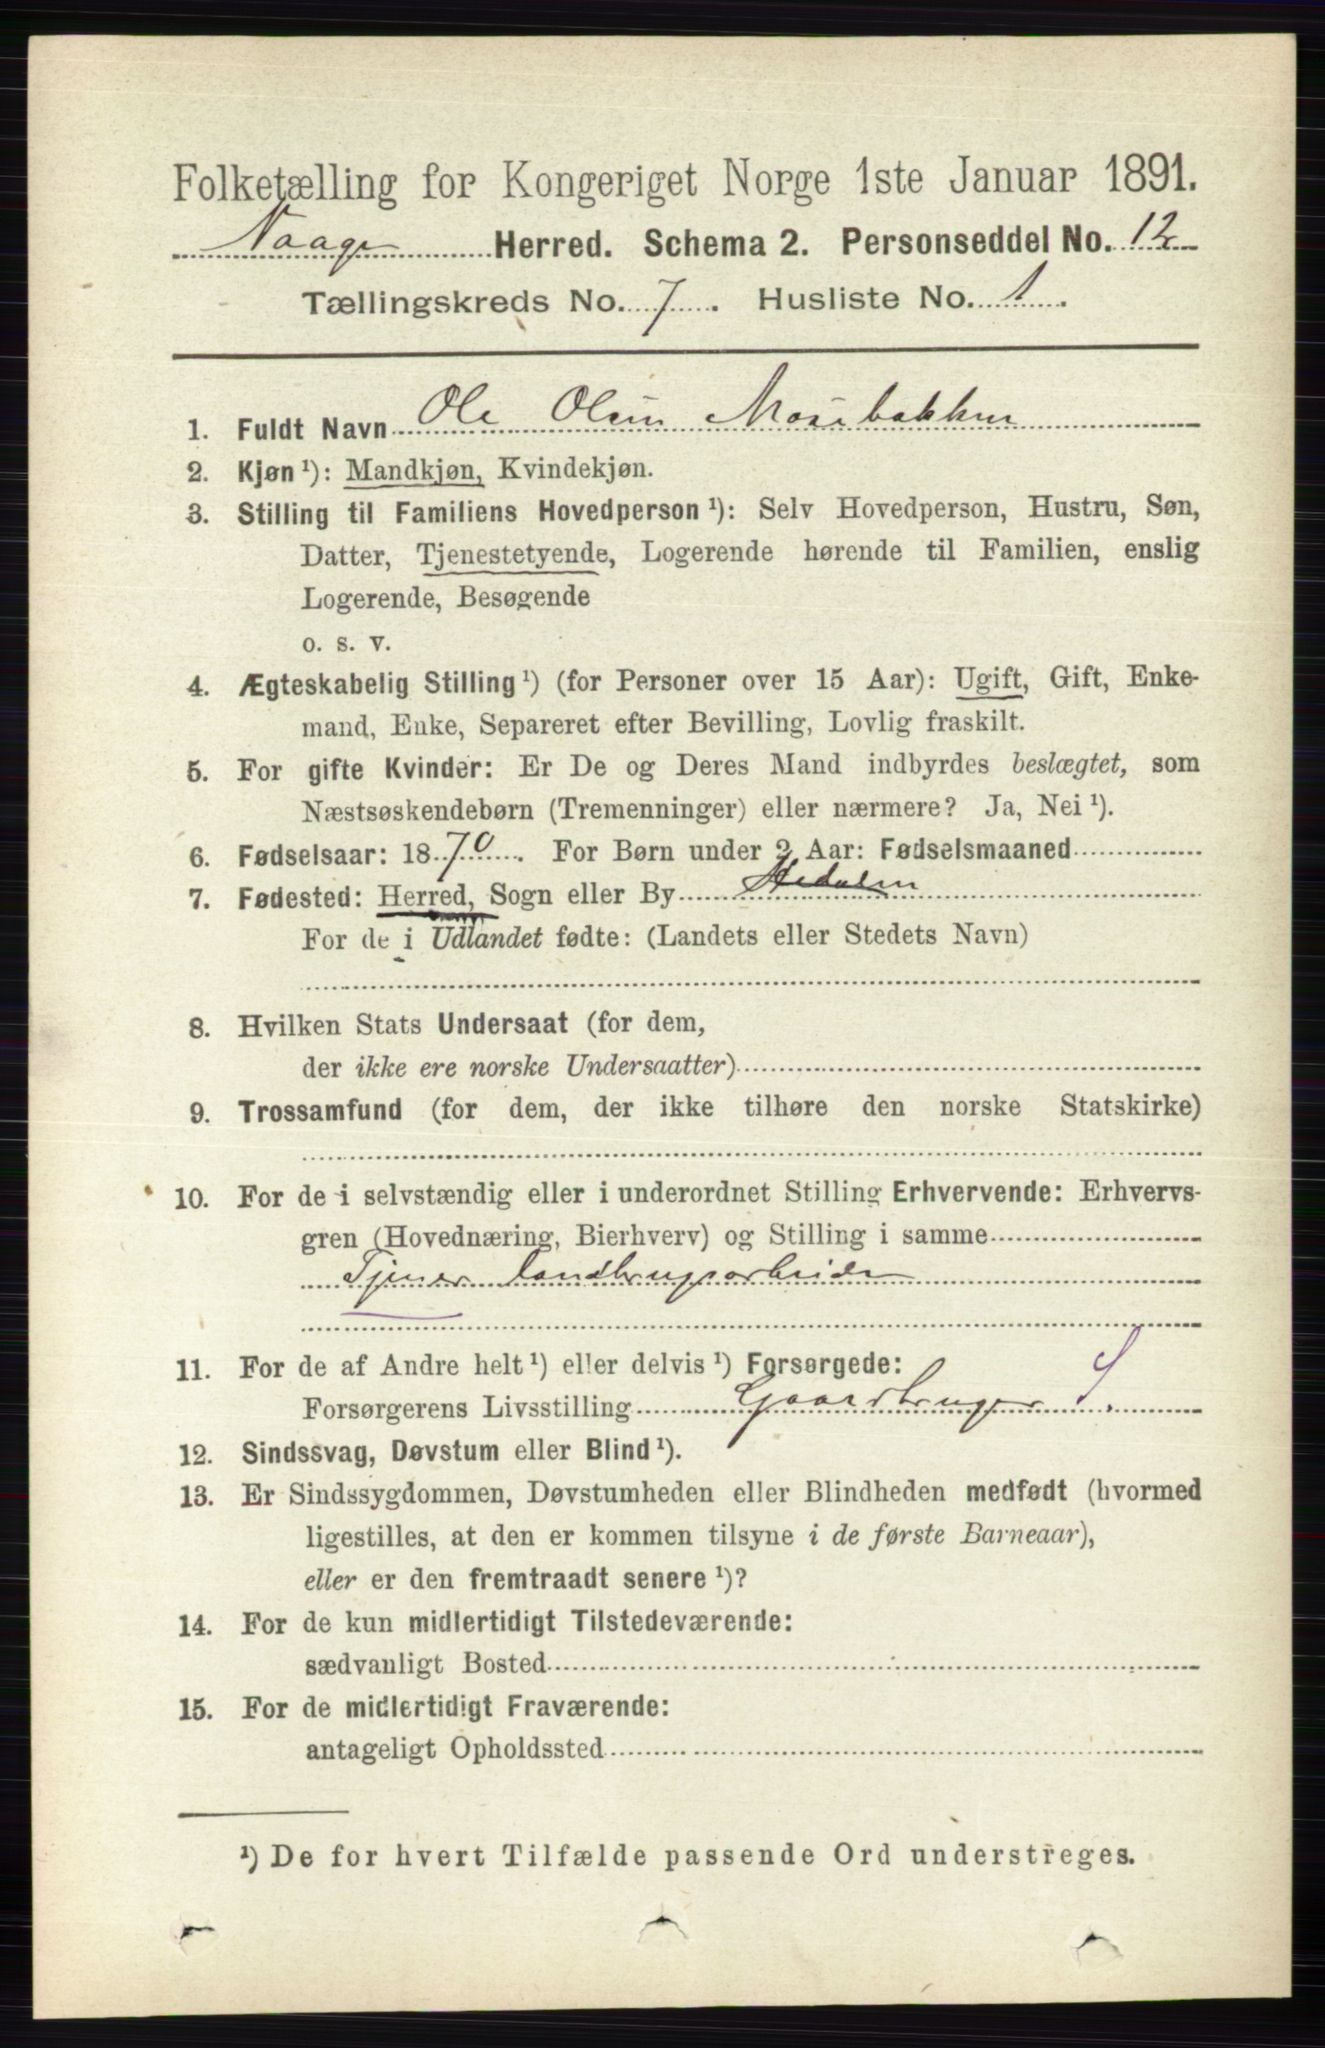 Folketælling for Kongeriget Norge 1ste Januar 1891.
Vaage Herred. Schema 2. Personseddel No. 12
Tællingskreds No. 7. Husliste No. 1.
1. Fuldt Navn Ole Olsen Mosebakken
2. Kjøn ¹): Mandkjøn, Kvindekjøn.
3. Stilling til Familiens Hovedperson ¹): Selv Hovedperson, Hustru, Søn,
Datter, Tjenestetyende, Logerende hørende til Familien, enslig
Logerende, Besøgende
o. s. v.
4. Ægteskabelig Stilling ¹) (for Personer over 15 Aar): Ugift, Gift, Enke-
mand, Enke, Separeret efter Bevilling, Lovlig fraskilt.
5. For gifte Kvinder: Er De og Deres Mand indbyrdes beslægtet, som
Næstsøskendebørn (Tremenninger) eller nærmere? Ja, Nei ¹).
6. Fødselsaar: 1870. For Børn under 2 Aar: Fødselsmaaned
7. Fødested: Herred, Sogn eller By Hedalen
For de i Udlandet fødte: (Landets eller Stedets Navn)
8. Hvilken Stats Undersaat (for dem,
der ikke ere norske Undersaatter)
9. Trossamfund (for dem, der ikke tilhøre den norske Statskirke)
10. For de i selvstændig eller i underordnet Stilling Erhvervende: Erhvervs-
gren (Hovednæring, Bierhverv) og Stilling i samme
Tjener landbrugsarbeide
11. For de af Andre helt ¹) eller delvis ¹) Forsørgede:
Forsørgerens Livsstilling Gaardbruger S.
12. Sindssvag, Døvstum eller Blind ¹).
13. Er Sindssygdommen, Døvstumheden eller Blindheden medfødt (hvormed
ligestilles, at den er kommen tilsyne i de første Barneaar),
eller er den fremtraadt senere ¹)?
14. For de kun midlertidigt Tilstedeværende:
sædvanligt Bosted
15. For de midlertidigt Fraværende:
antageligt Opholdssted
¹) De for hvert Tilfælde passende Ord understreges.